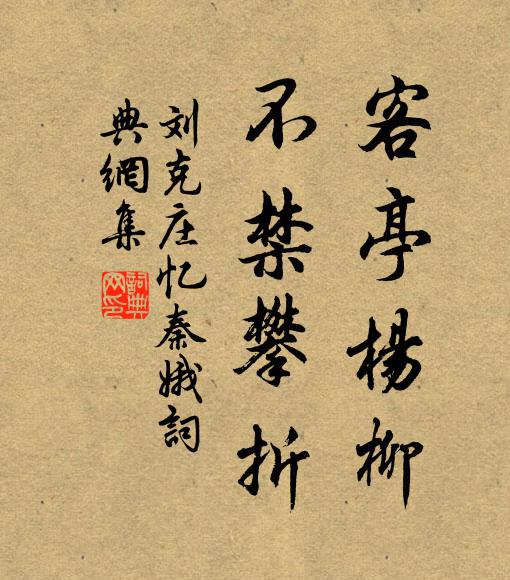 客亭楊柳
不禁攀折
刘克庄忆秦娥詞
典網集
詞典網印